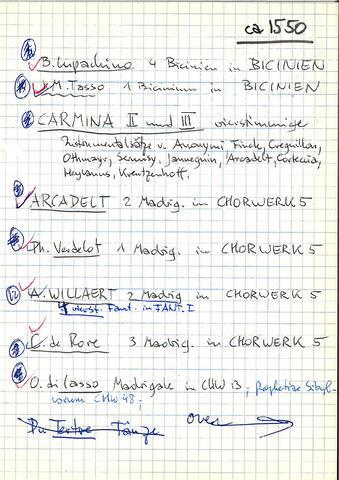 ca 1550
B. Lupachino 4 Bicinien in BICINIEN
J.M. Tasso 1 Bicinium in BICINIEN
CARMINA II und III vierstimmige
Instrumentalsätze v. Anonymi Finck, Crequillon,
Othmayr, Sermisy, Jannequin, Arcadelt, Corteccia,
Heylanus, Kreutzenhoff.
ARCADELT 2 Madrig. in CHORWERK 5
Ph. Verdelot 1 Madrig. in CHORWERK 5
12 A. WILLAERT 2 Madrig in CHORWERK 5
4 vierst. Fant. in FANT. I
C. de Rore 3 Madrig. in CHORWERK 5
O. di Lasso Madrigale in CHW 13; Prophetiae Sibyl-
larum CHW 48;
Du Tertre Tänze over